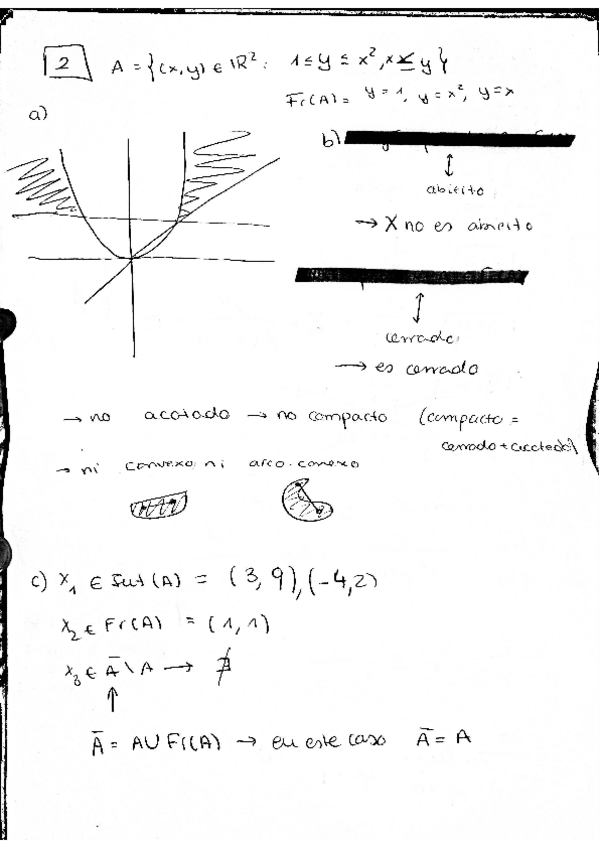 2 A = {(x,y) ∈ IR²: 1 ≤ y ≤ x², x ≤ y}
Fr(A) = y = 1, y = x², y = x
a)
b)
↕
abierto
→ X no es abierto
↕
cerrado
→ es cerrado
→ no acotado → no compacto (compacto =
cerrado + acotado)
→ ni convexo ni arco-conexo
c) x₁ ∈ Int(A) = (3,9), (-4,2)
x₂ ∈ Fr(A) = (1,1)
x₃ ∈ Ā \ A → ∄
↑
Ā = A ∪ Fr(A) → en este caso Ā = A